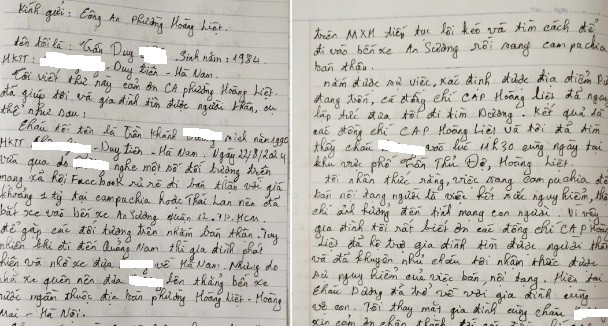 Kính gửi: Công An Phường Hoàng Liệt.
tên tôi là: Trần Duy Sinh năm: 1984.
HKTT: - Duy Tiên - Hà Nam.
Tôi viết thư này cảm ơn CA phường Hoàng Liệt.
đã giúp tôi và gia đình tìm được người thân, cụ
thể như sau:
Cháu tôi tên là Trần Khánh sinh năm 1990
HKTT - Duy Tiên - Hà Nam. Ngày 22/3/2024
vừa qua do nghe một số đối tượng trên
mạng xã hội Facebook rủ rê đi bán thận với giá
khoảng 1 tỷ tại campuchia hoặc Thái Lan nên đã
bắt xe vào bến xe An Sương quận 12. TP. HCM.
để gặp các đối tượng trên nhằm bán thận. Tuy
nhiên khi đi đến Quảng Nam thì gia đình phát
hiện và nhờ xe đưa về Hà Nam. Nhưng do
nhà xe quên nên đưa đến thẳng bến xe
nước ngầm thuộc địa bàn phường Hoàng Liệt - Hoàng
Mai - Hà Nội.
trên MXH tiếp tục lôi kéo và tìm cách để
đi vào bến xe An Sương rồi sang campuchia
bán thận.
nắm được sự việc, xác định được địa điểm
đang trốn, các đồng chí CAP Hoàng Liệt đã ngay
lập tức đưa tôi đi tìm Dương. Kết quả là
các đồng chí CAP Hoàng Liệt và tôi đã tìm
thấy cháu vào lúc 11h30 cùng ngày tại
khu vực phố Trần Thủ Độ, Hoàng Liệt.
tôi nhận thức rằng, việc sang campuchia để
bán nội tạng người là việc hết sức nguy hiểm,
chí ảnh hưởng đến tính mạng con người. Vì vậy
gia đình tôi rất biết ơn các đồng chí CAP Hoàng
Liệt đã hỗ trợ gia đình tìm được người thân
và đã khuyên nhủ cháu tôi nhận thức được
sự nguy hiểm của việc bán nội tạng. Hiện tại
cháu Dương đã trở về với gia đình cùng
vợ con. Tôi thay mặt gia đình cùng cháu
xin cảm ơn chân thành